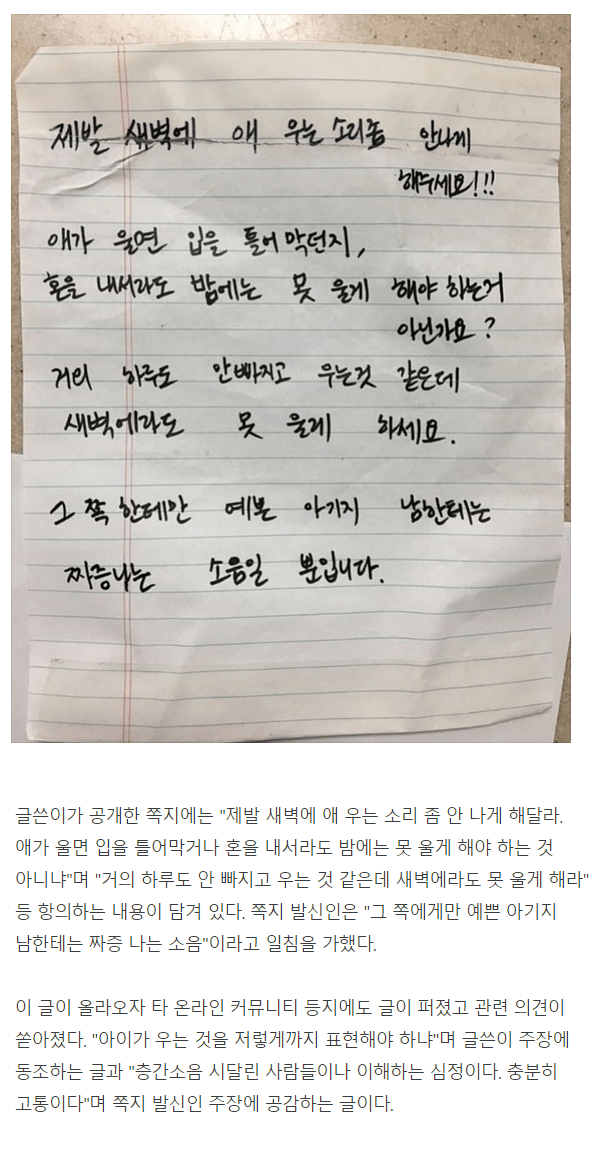 제발 새벽에 애 우는 소리좀 안나게
해주세요!!!
애가 울면 입을 틀어막던지,
혼을 내서라도 밤에는 못 울게 해야 하는거
아닌가요?
거의 하루도 안빠지고 우는것 같은데
새벽에라도 못 울게 하세요.
그 쪽한테만 예쁜 아기지 남한테는
짜증나는 소음일 뿐입니다.
글쓴이가 공개한 쪽지에는 "제발 새벽에 애 우는 소리 좀 안 나게 해달라.
애가 울면 입을 틀어막거나 혼을 내서라도 밤에는 못 울게 해야 하는 것
아니냐"며 "거의 하루도 안 빠지고 우는 것 같은데 새벽에라도 못 울게 해라"
등 항의하는 내용이 담겨 있다. 쪽지 발신인은 "그 쪽에게만 예쁜 아기지
남한테는 짜증 나는 소음"이라고 일침을 가했다.
이 글이 올라오자 타 온라인 커뮤니티 등지에도 글이 퍼졌고 관련 의견이
쏟아졌다. "아이가 우는 것을 저렇게까지 표현해야 하냐"며 글쓴이 주장에
동조하는 글과 "층간소음 시달린 사람들이나 이해하는 심정이다. 충분히
고통이다"며 쪽지 발신인 주장에 공감하는 글이다.